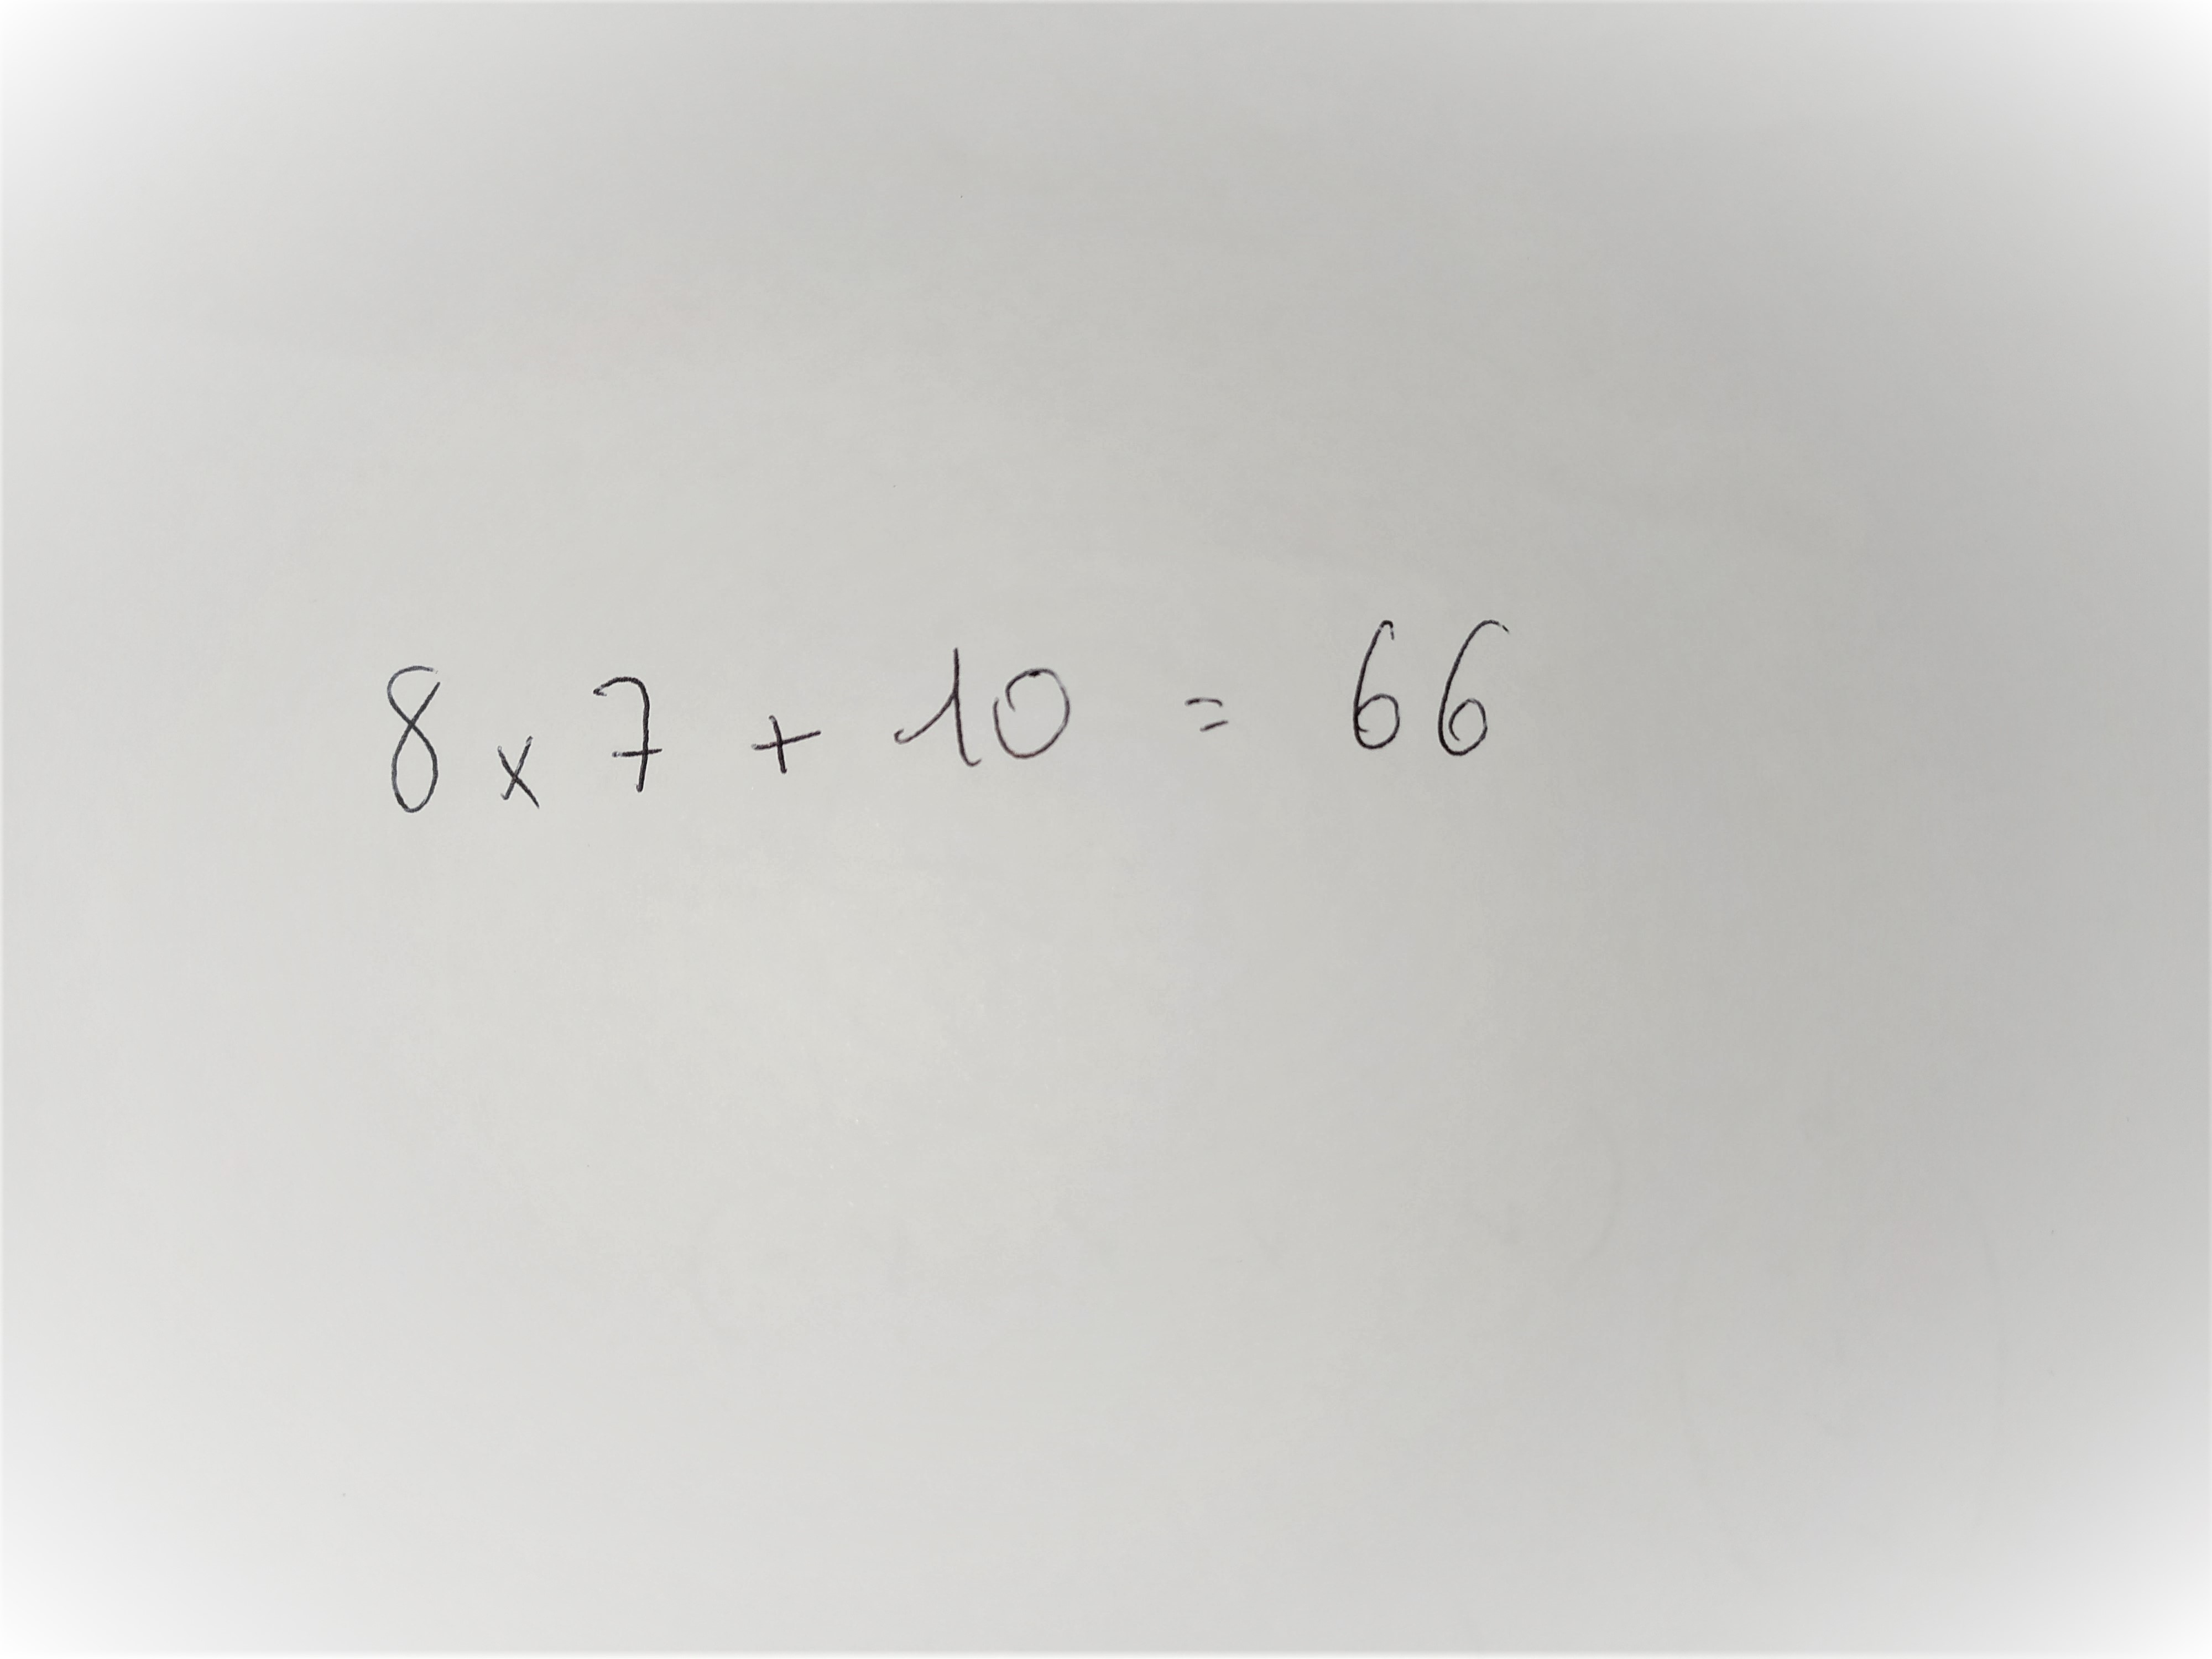 8 x 7 + 10 = 66